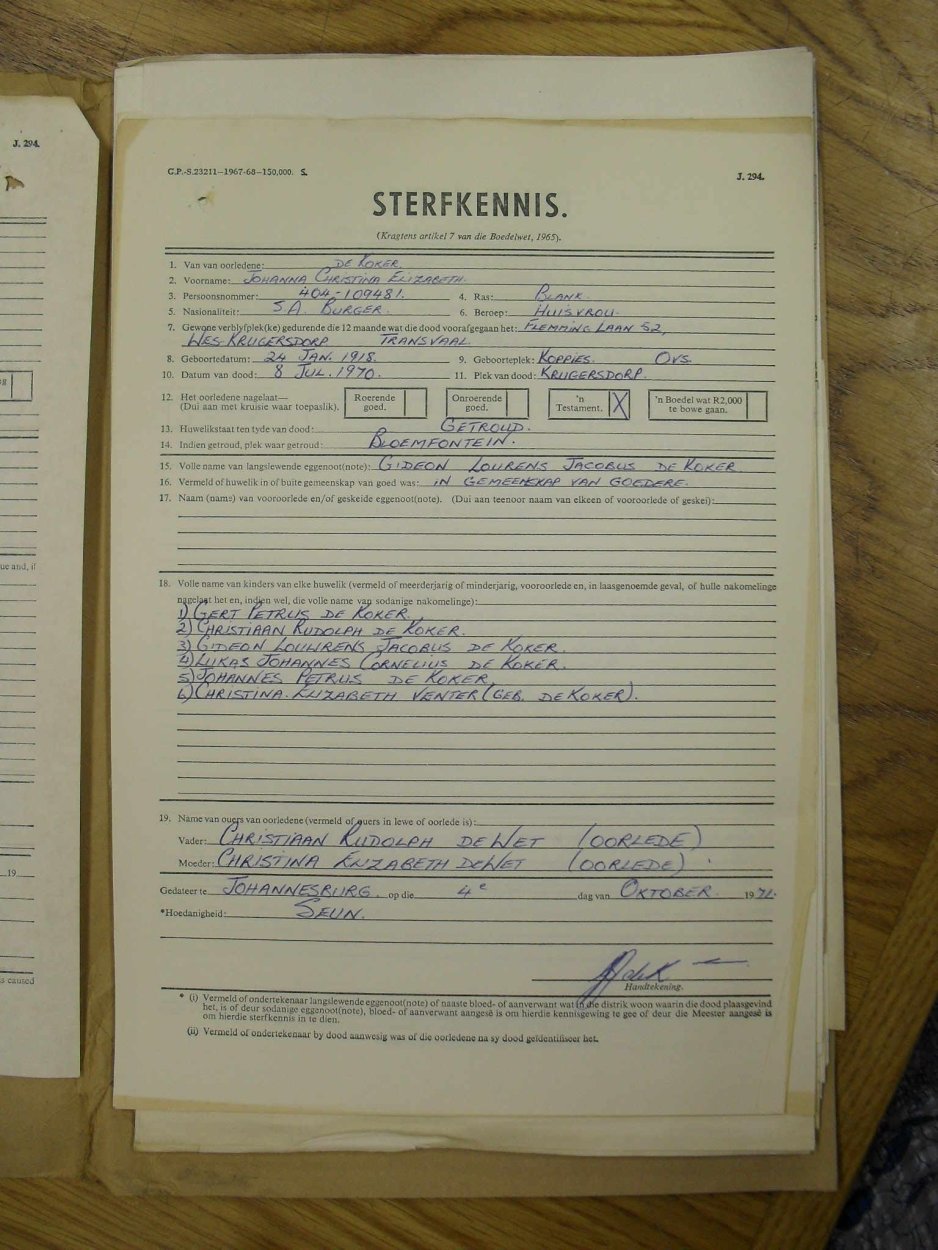 J. 294.
ue and, if
19
s caused
G.P.-S.23211—1967-68—150,000. S.
J. 294.
STERFKENNIS.
(Kragtens artikel 7 van die Boedelwet, 1965).
1. Van van oorledene: DE KOKER.
2. Voorname: JOHANNA CHRISTINA ELIZABETH.
3. Persoonsnommer: 404-109481. 4. Ras: BLANK.
5. Nasionaliteit: S.A. BURGER. 6. Beroep: HUISVROU.
7. Gewone verblyfplek(ke) gedurende die 12 maande wat die dood voorafgegaan het: FLEMMING LAAN 52,
WES-KRUGERSDORP TRANSVAAL
8. Geboortedatum: 24 JAN. 1918. 9. Geboorteplek: KOPPIES. OVS.
10. Datum van dood: 8 JUL. 1970. 11. Plek van dood: KRUGERSDORP.
12. Het oorledene nagelaat— (Dui aan met kruisie waar toepaslik). Roerende goed. Onroerende goed. 'n Testament. X 'n Boedel wat R2,000 te bowe gaan.
13. Huwelikstaat ten tyde van dood: GETROUD.
14. Indien getroud, plek waar getroud: BLOEMFONTEIN.
15. Volle name van langslewende eggenoot(note): GIDEON LOURENS JACOBUS DE KOKER
16. Vermeld of huwelik in of buite gemeenskap van goed was: IN GEMEENSKAP VAN GOEDERE.
17. Naam (name) van vooroorlede en/of geskeide eggenoot(note). (Dui aan teenoor naam van elkeen of vooroorlede of geskei):
18. Volle name van kinders van elke huwelik (vermeld of meerderjarig of minderjarig, vooroorlede en, in laasgenoemde geval, of hulle nakomelinge
nagelaat het en, indien wel, die volle name van sodanige nakomelinge):
1) GERT PETRUS DE KOKER.
2) CHRISTIAAN RUDOLPH DE KOKER.
3) GIDEON LOUWRENS JACOBUS DE KOKER.
4) LUKAS JOHANNES CORNELIUS DE KOKER.
5) JOHANNES PETRUS DE KOKER.
6) CHRISTINA ELIZABETH VENTER (GEB. DE KOKER).
19. Name van ouers van oorledene (vermeld of ouers in lewe of oorlede is):
Vader: CHRISTIAAN RUDOLPH DE WET (OORLEDE)
Moeder: CHRISTINA ELIZABETH DE WET (OORLEDE)
Gedateer te JOHANNESBURG op die 4e dag van OKTOBER 19
*Hoedanigheid: SEUN.
Handtekening.
* (i) Vermeld of ondertekenaar langslewende eggenoot(note) of naaste bloed- of aanverwant wat in die distrik woon waarin die dood plaasgevind
het, is of deur sodanige eggenoot(note), bloed- of aanverwant aangesê is om hierdie kennisgewing te gee of deur die Meester aangesê is
om hierdie sterfkennis in te dien.
(ii) Vermeld of ondertekenaar by dood aanwesig was of die oorledene na sy dood geïdentifiseer het.